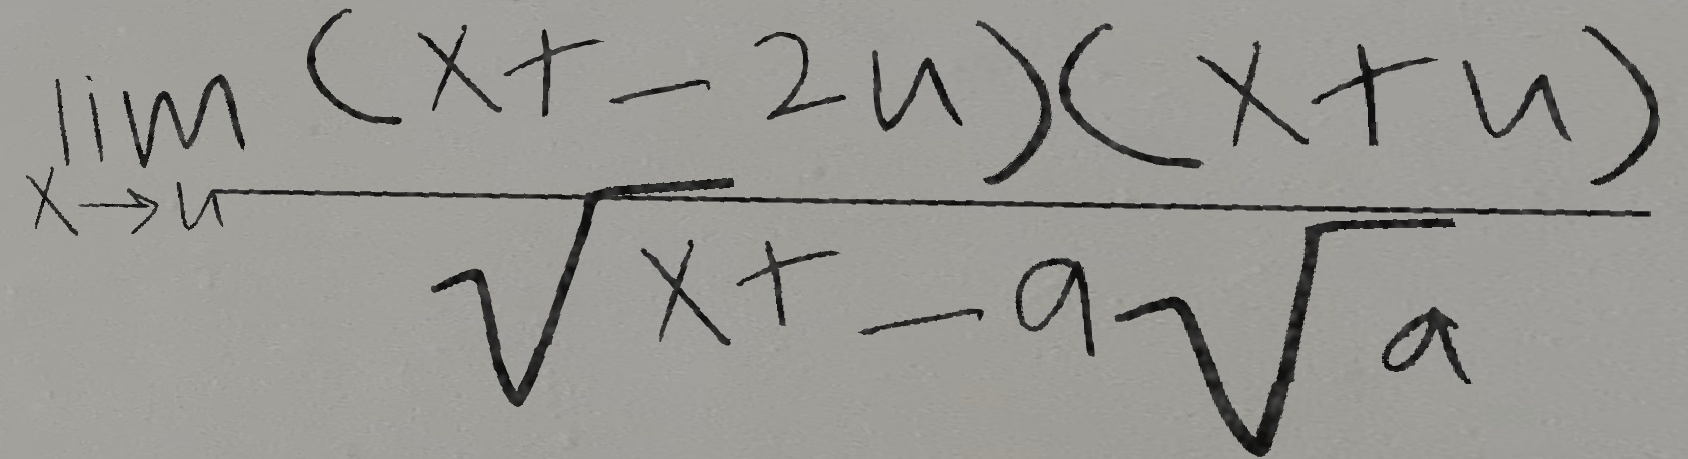 \lim_{x \to u} \frac{(x + - 2u)(x + u)}{\sqrt{x + - 9\sqrt{a}}}